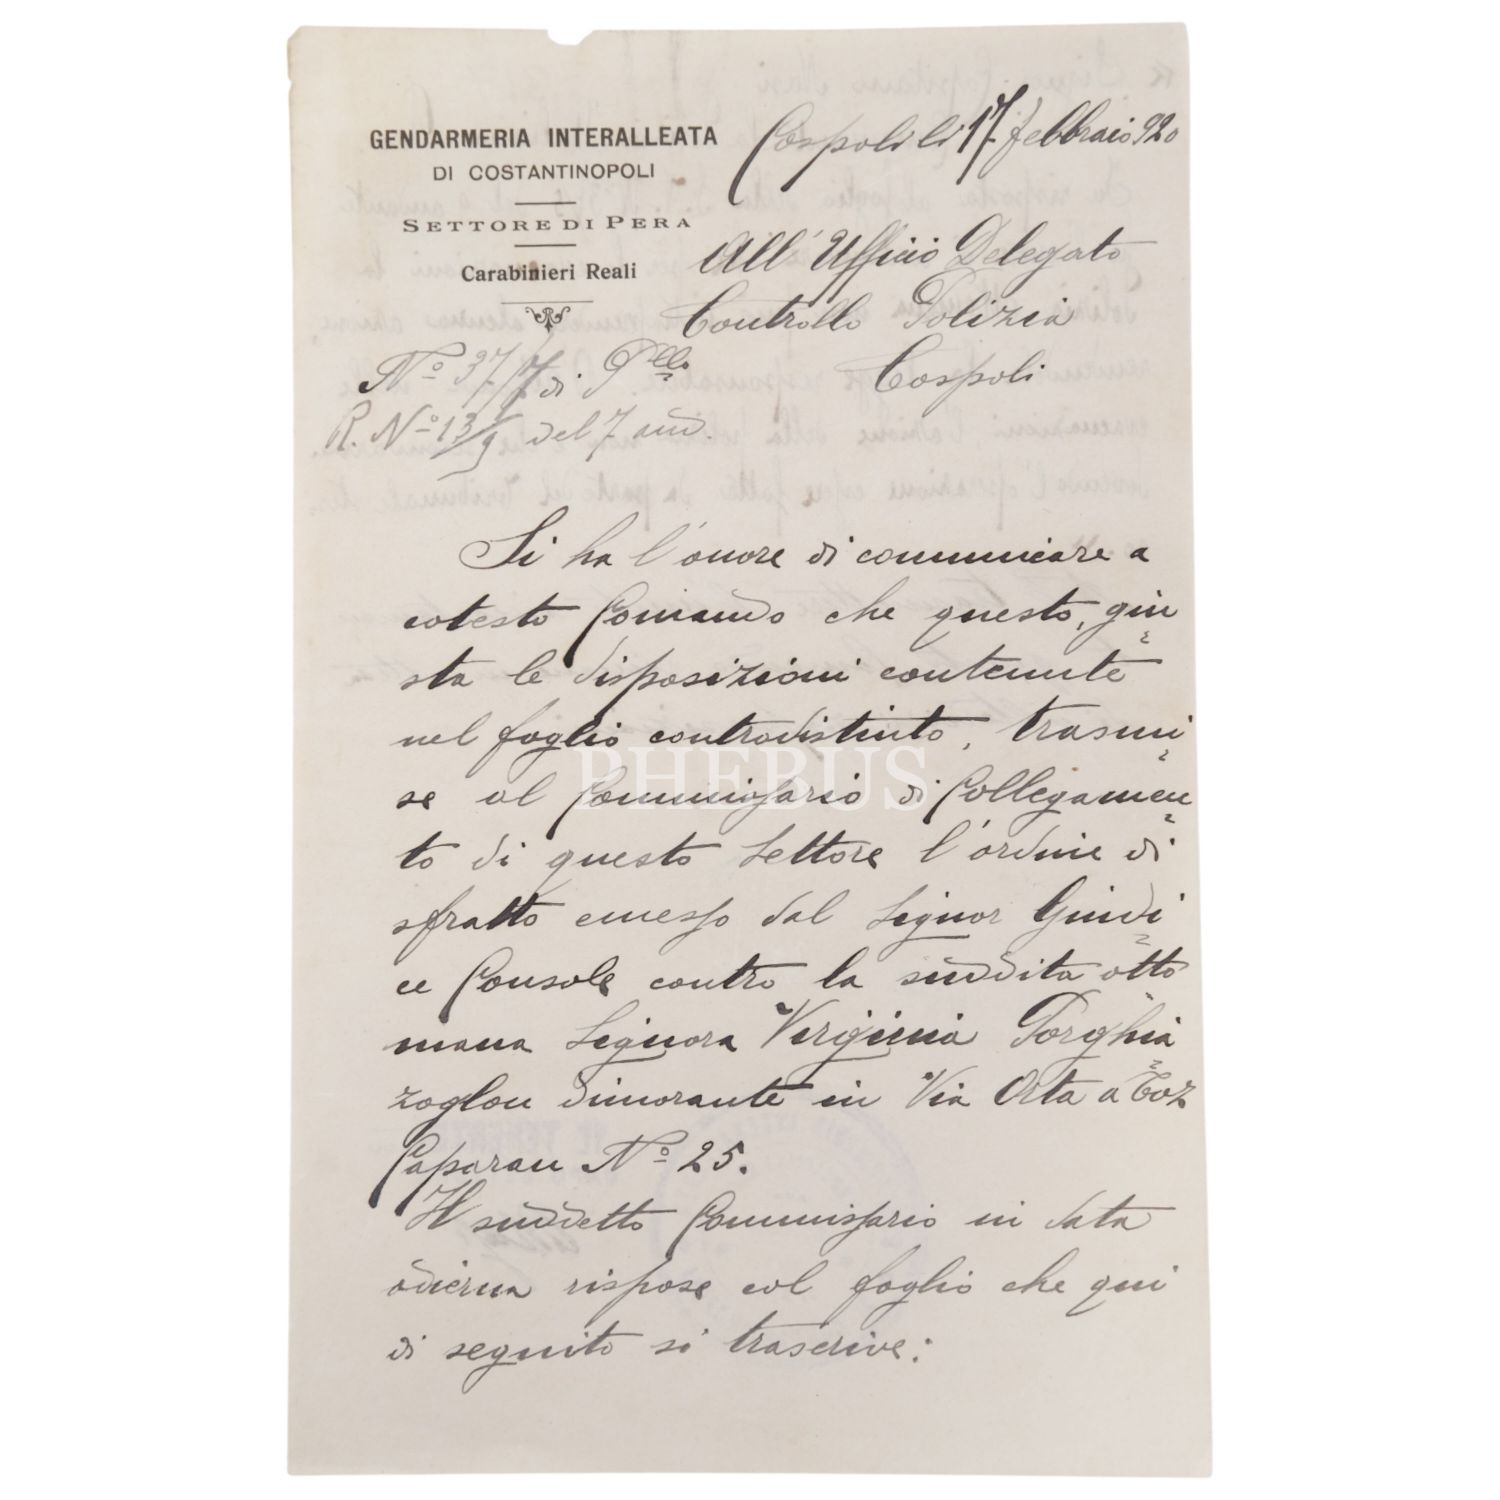 GENDARMERIA INTERALLEATA
DI COSTANTINOPOLI
SETTORE DI PERA
Carabinieri Reali
Cospoli li 17 febbraio 920
All' Ufficio Delegato
Controllo Polizia
Cospoli
Nº 37/7 di P.llo
R. Nº 13/9 del 7 and.
Si ha l'onore di comunicare a
cotesto Comando che questo, giu
sta le disposizioni contenute
nel foglio controdistinto, trasmi
se al Commissario di Collegamen
to di questo Settore l'ordine di
sfratto emesso dal Signor Giudi
ce Console contro la suddita otto
mana Signora Virginia Porghia
zoglou dimorante in Via Orta a Coz
Caparan Nº 25.
Il suddetto Commissario in data
odierna rispose col foglio che qui
di seguito si trascrive:
PHEBUS